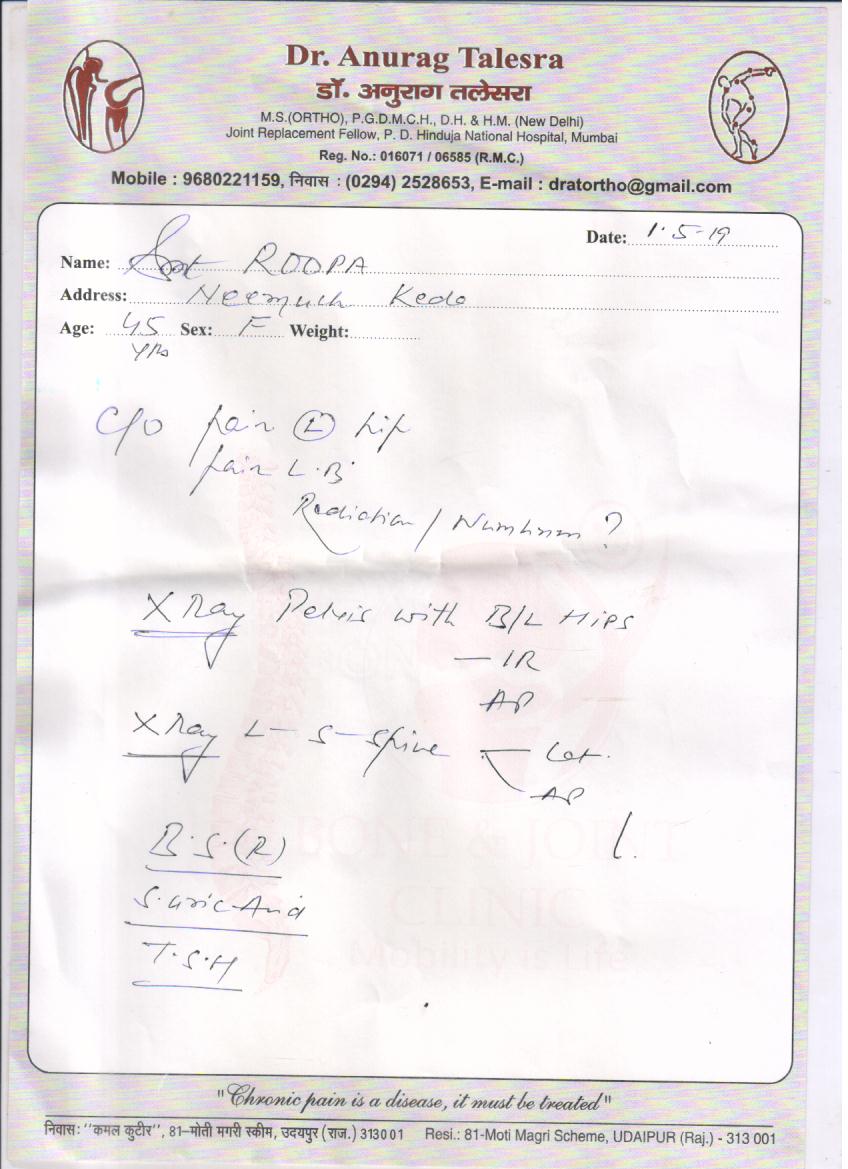 Dr. Anurag Talesra
डॉ. अनुराग तलेसरा
M.S.(ORTHO), P.G.D.M.C.H., D.H. & H.M. (New Delhi)
Joint Replacement Fellow, P. D. Hinduja National Hospital, Mumbai
Reg. No.: 016071 / 06585 (R.M.C.)
Mobile : 9680221159, निवास : (0294) 2528653, E-mail : dratortho@gmail.com
Date: 1.5-19
Name: Smt ROOPA
Address: Neemuch Kedo
Age: 45 yrs Sex: F Weight:
C/O pain (L) hip
pain L.B.
Radiation / Numbness ?
X Ray Pelvis with B/L HIPS
— IR
AP
X Ray L-S-Spine — Lat.
AP
B.S.(R)
S. uric Acid
T.S.H
BONE & JOINT
CLINIC
Mobility is Life
"Chronic pain is a disease, it must be treated"
निवास: "कमल कुटीर", 81-मोती मगरी स्कीम, उदयपुर (राज.) 313001 Resi.: 81-Moti Magri Scheme, UDAIPUR (Raj.) - 313 001